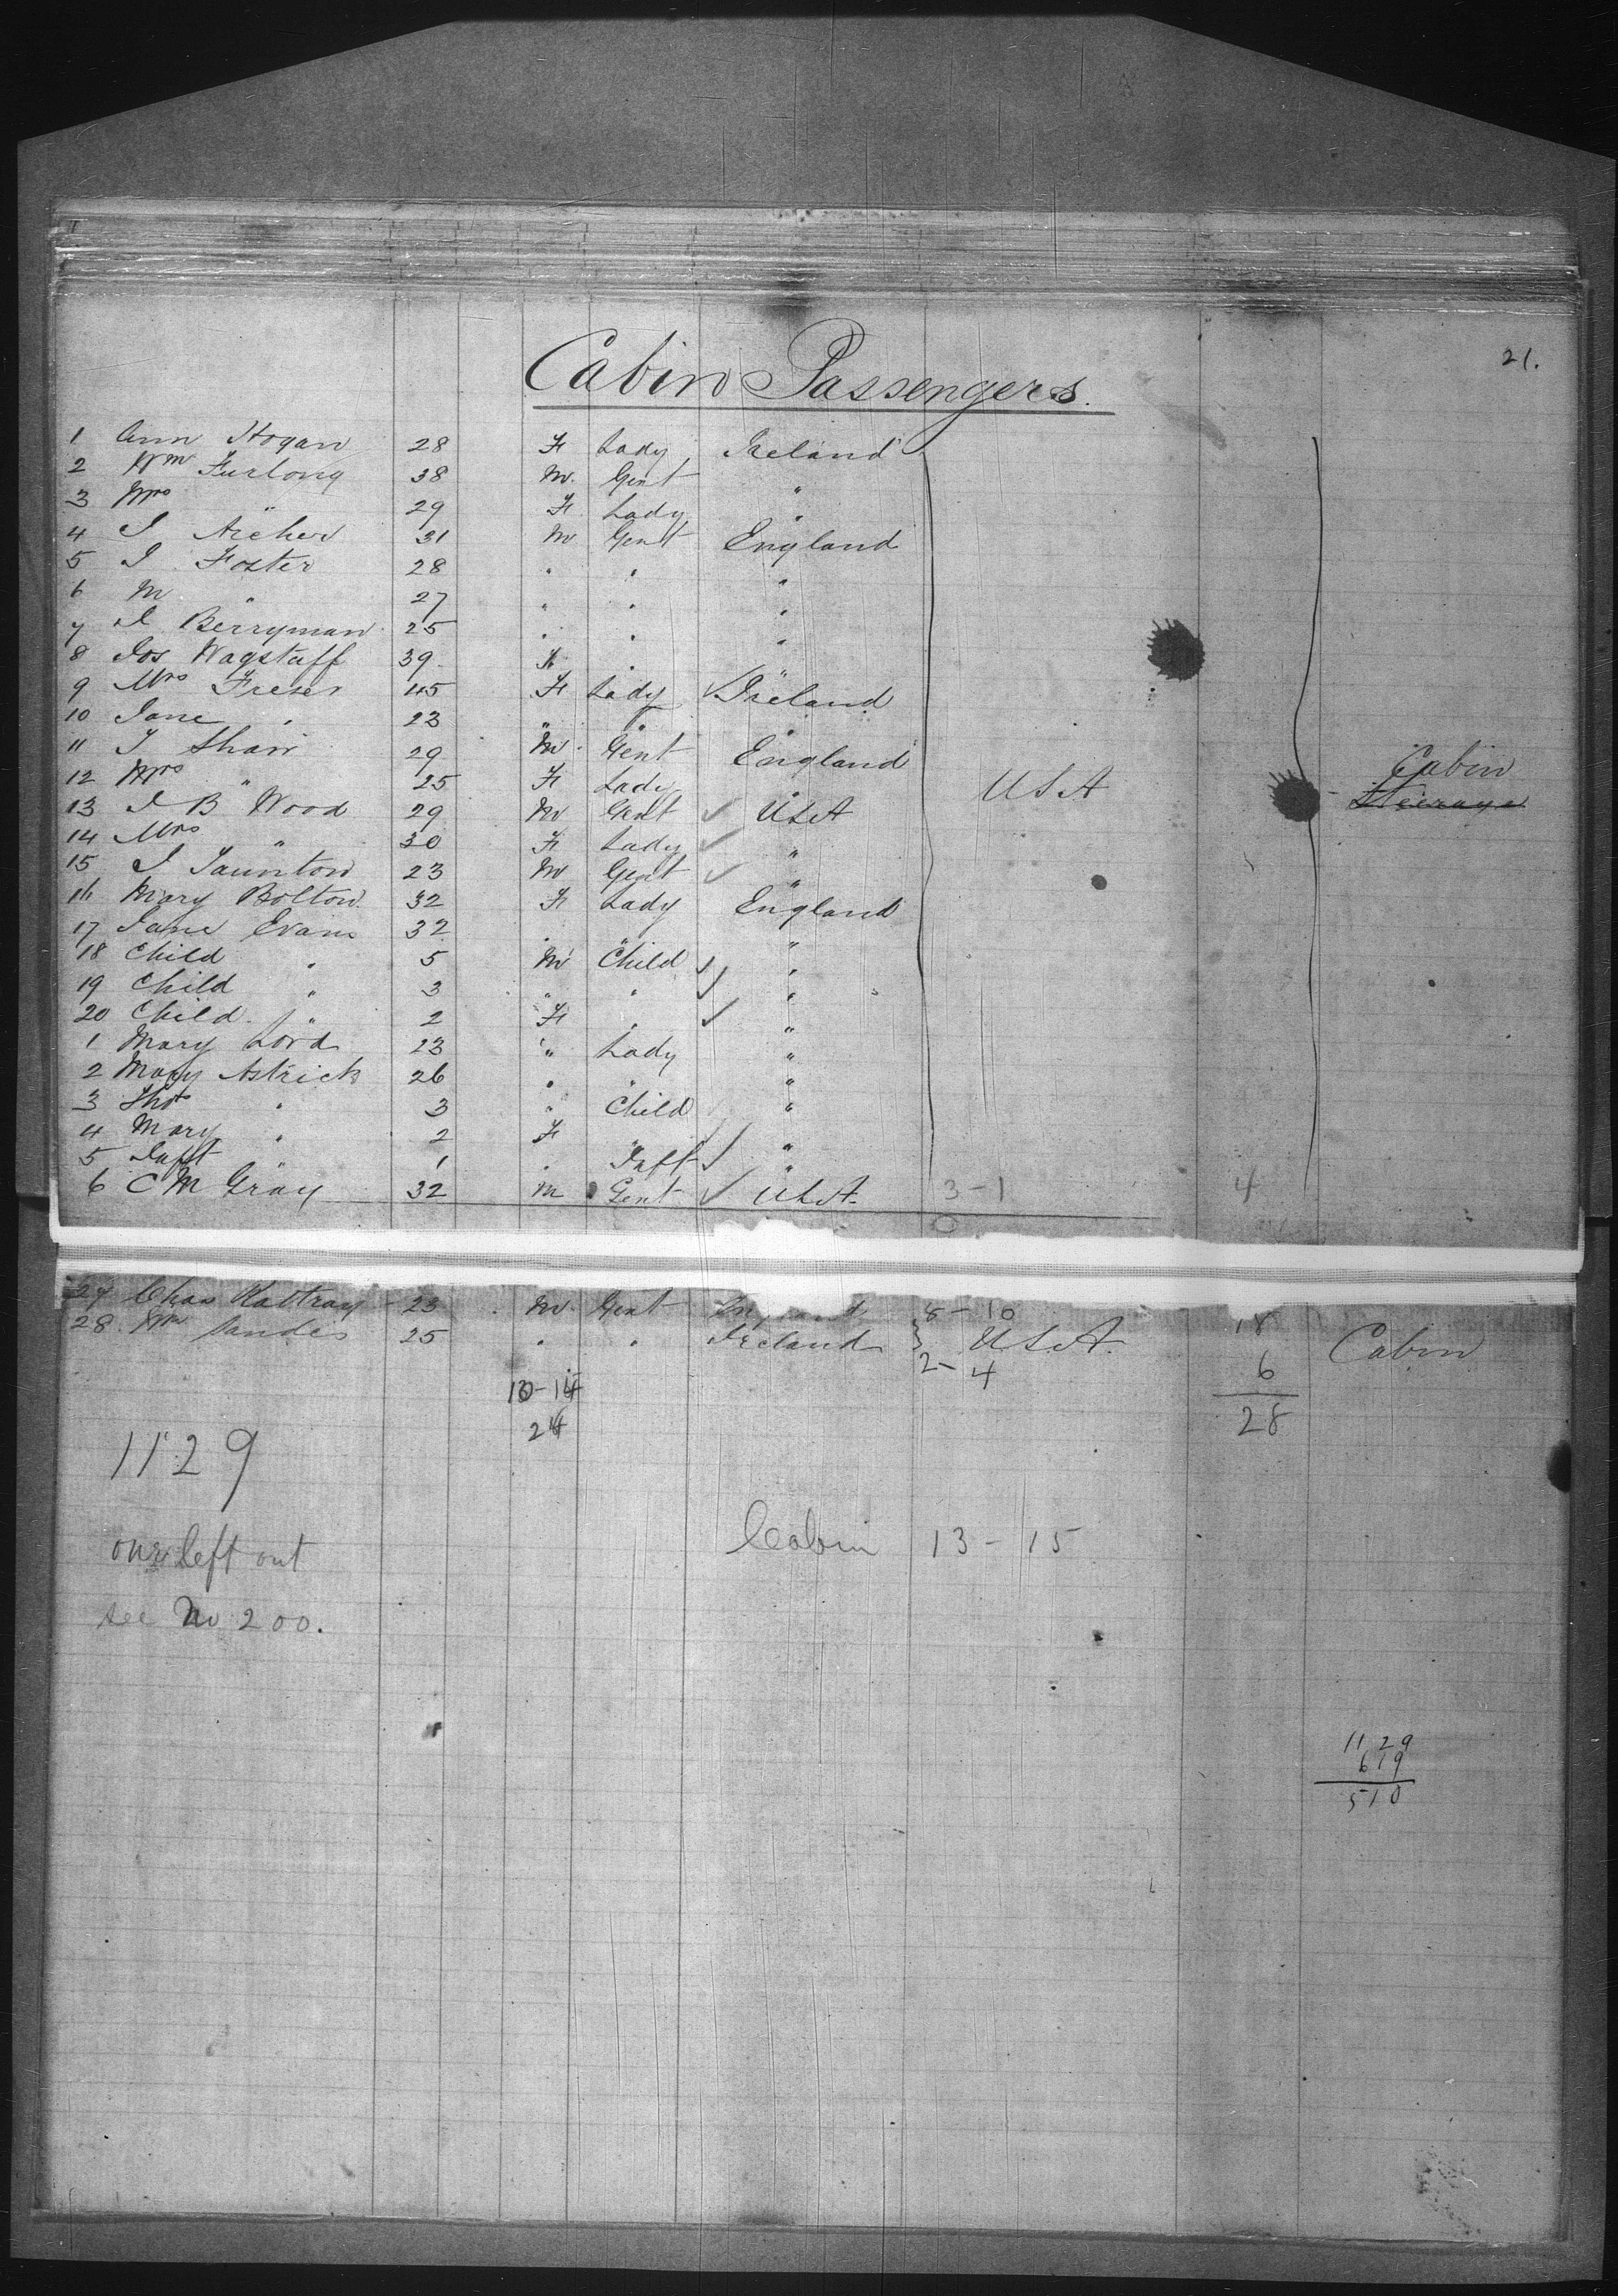 21.
Cabin Passengers.
1 Ann Hogan 28 F Lady Ireland
2 Wm Furlong 38 M. Gent "
3 Mrs " 29 F Lady "
4 J Archer 31 M Gent England
5 J Foster 28 " " "
6 M " 27 " " "
7 J Berryman 25 " " "
8 Jos Wagstaff 39 " "
9 Mrs Freser 45 F Lady ✓ Ireland
10 Jane " 23 " " "
11 J Shaw 29 M Gent England
12 Mrs " 25 F Lady USA Cabin
13 J B Wood 29 M Gent ✓ USA Steerage
14 Mrs " 30 F Lady ✓ "
15 J Taunton 23 M Gent ✓ "
16 Mary Bolton 32 F Lady England
17 Jane Evans 32 " " "
18 Child " 5 M Child ✓ "
19 Child " 3 " " ✓ "
20 Child " 2 F " ✓ "
1 Mary Lord 23 " Lady "
2 Mary Astrick 26 " " "
3 Thos " 3 " Child "
4 Mary " 2 F " ✓ "
5 Infft " 1 " Infft ✓ "
6 C M Gray 32 M Gent ✓ USA 3-1 4
0
27 Chas Rattray 23 M Gent England 8-10 18
28 Wm Sandes 25 " " Ireland } USA Cabin
2-4 6
10-14 28
24
1129
Cabin 13-15
one left out
see No 200.
1129
619
510